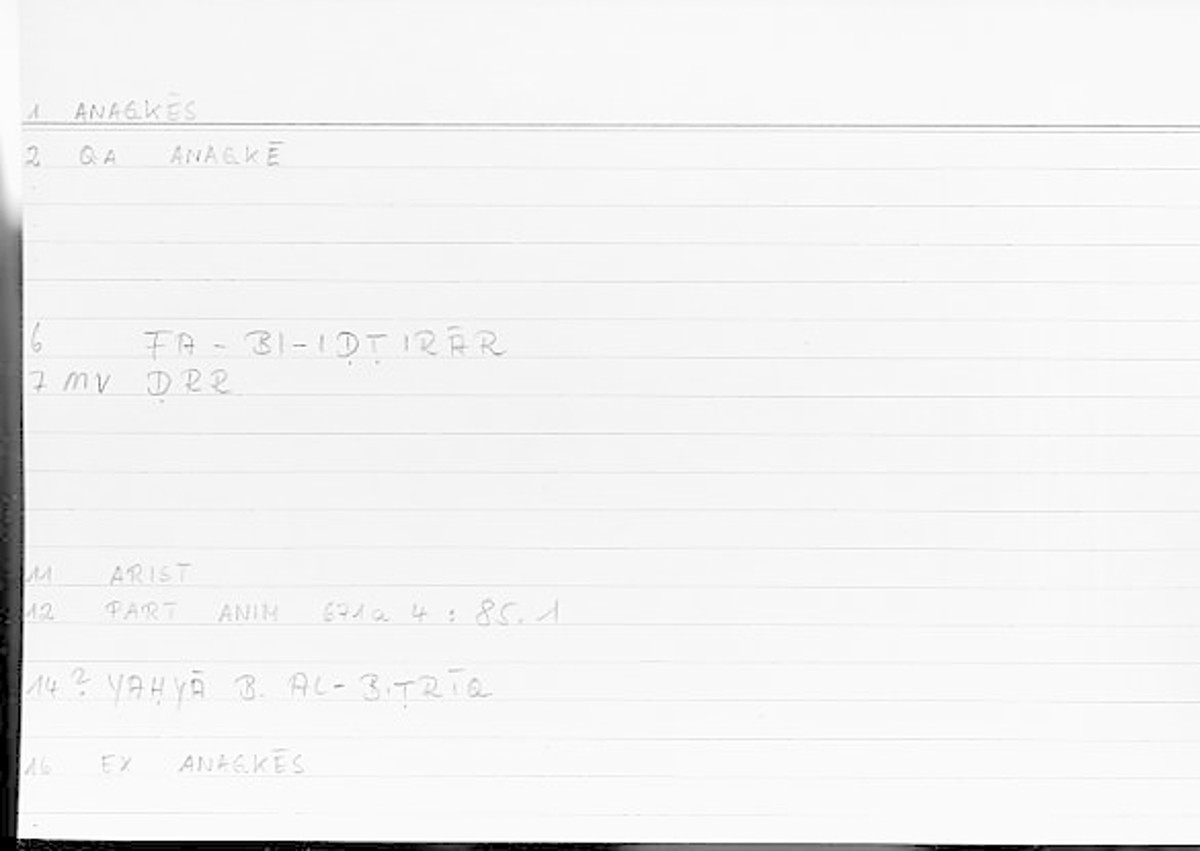 1 ANAGKĒS
2 QA ANAGKĒ
6 FA-BI-IḌṬIRĀR
7 MV ḌRR
11 ARIST
12 PART ANIM 671a 4 : 85.1
14 ? YAḤYĀ B. AL-BIṬRĪQ
16 EX ANAGKĒS